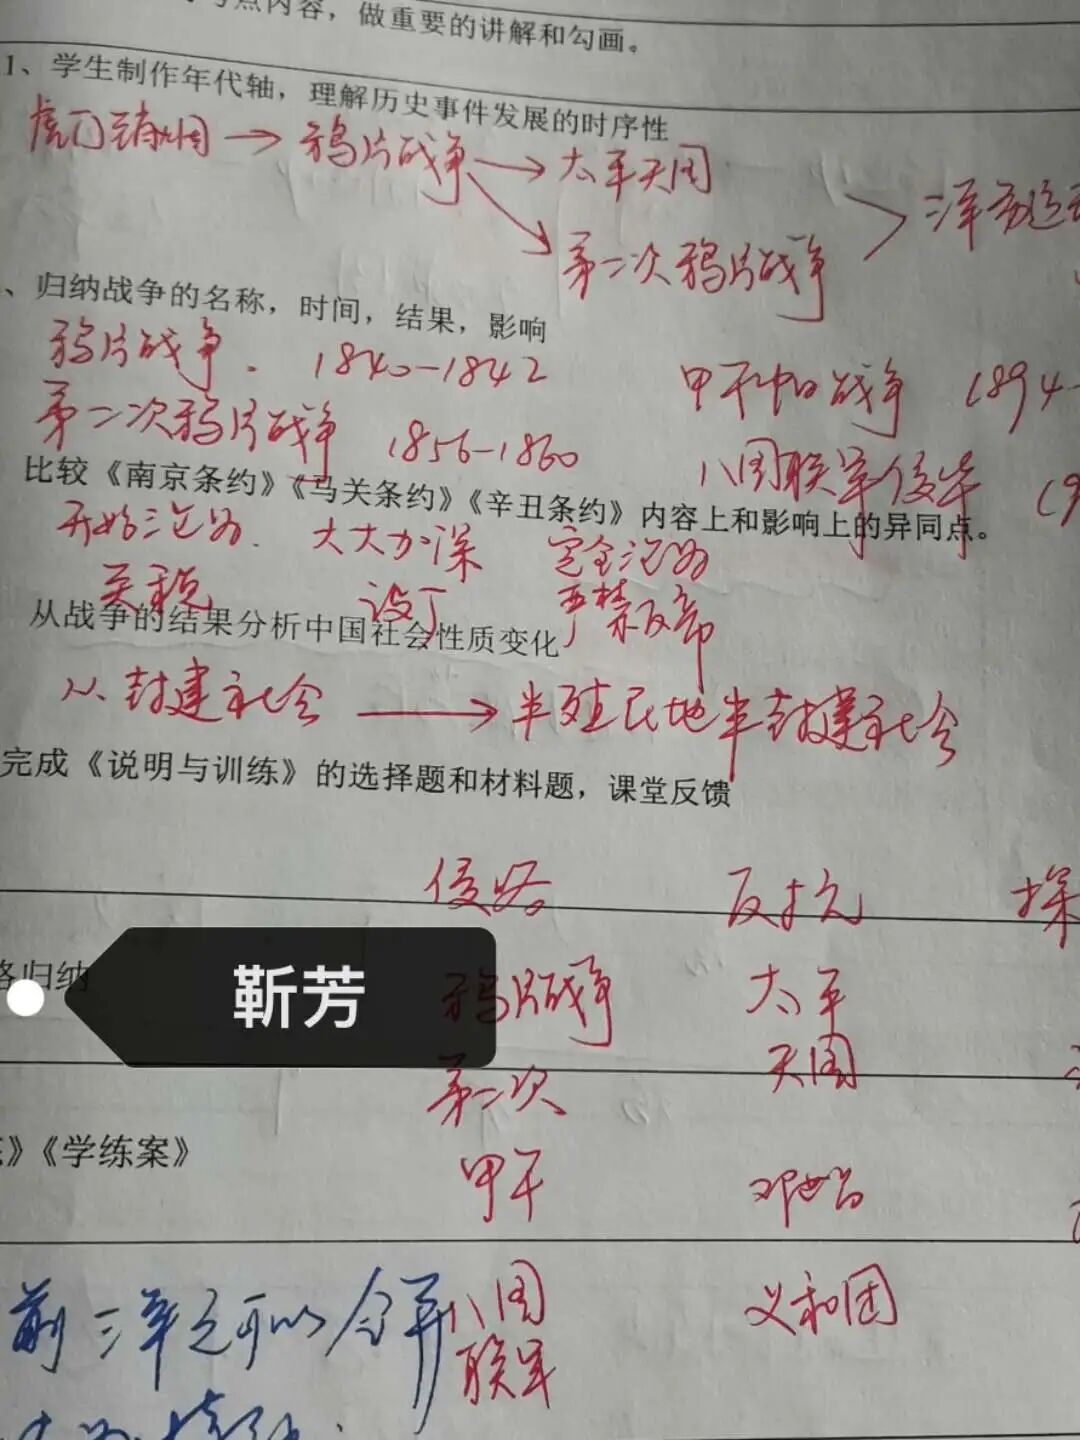 考点内容，做重要的讲解和勾画。
1、学生制作年代轴，理解历史事件发展的时序性
虎门销烟 → 鸦片战争 → 太平天国
第二次鸦片战争
洋务运动
、归纳战争的名称，时间，结果，影响
鸦片战争. 1840-1842
甲午中日战争 1894-
第二次鸦片战争 1856-1860
八国联军侵华 19
比较《南京条约》《马关条约》《辛丑条约》内容上和影响上的异同点。
开始沦为. 大大加深 完全沦为
关税 设厂 严禁反帝
从战争的结果分析中国社会性质变化
从封建社会 → 半殖民地半封建社会
完成《说明与训练》的选择题和材料题，课堂反馈
侵略 反抗 探
络归纳
靳芳
鸦片战争 太平
天国
第二次
》《学练案》
甲午 邓世昌
八国 义和团
联军
前 三 可以